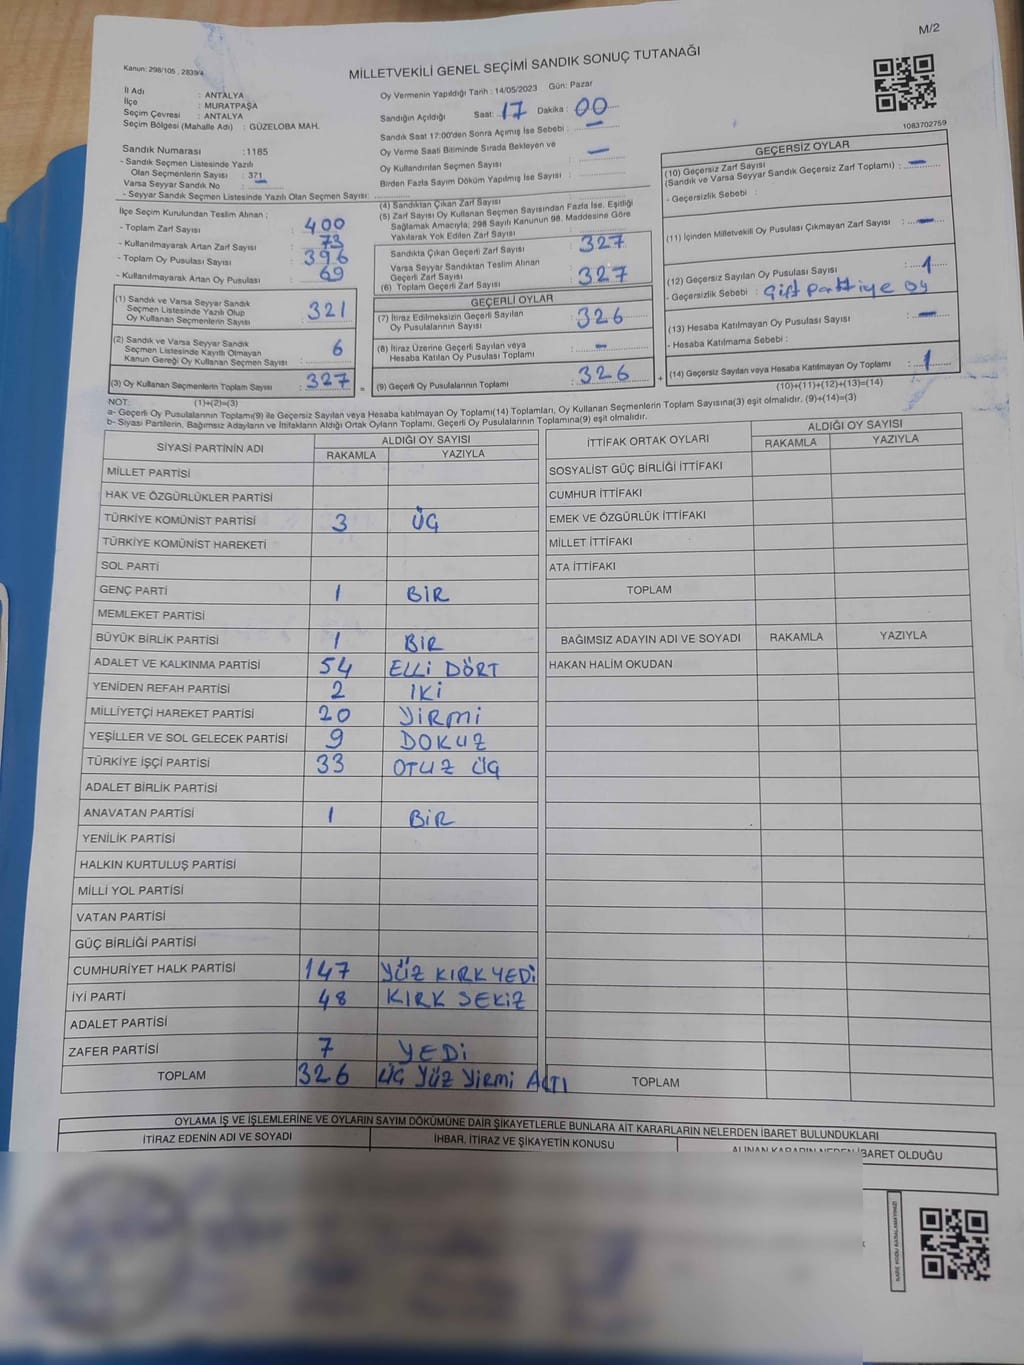 M/2
Kanun: 298/105 , 2839/4
MİLLETVEKİLİ GENEL SEÇİMİ SANDIK SONUÇ TUTANAĞI
İl Adı : ANTALYA
İlçe : MURATPAŞA
Seçim Çevresi : ANTALYA
Seçim Bölgesi (Mahalle Adı) : GÜZELOBA MAH.
Sandık Numarası : 1185
- Sandık Seçmen Listesinde Yazılı
Olan Seçmenlerin Sayısı : 371
Varsa Seyyar Sandık No : —
- Seyyar Sandık Seçmen Listesinde Yazılı Olan Seçmen Sayısı:
İlçe Seçim Kurulundan Teslim Alınan ;
- Toplam Zarf Sayısı : 400
- Kullanılmayarak Artan Zarf Sayısı : 73
- Toplam Oy Pusulası Sayısı : 396
- Kullanılmayarak Artan Oy Pusulası : 69
(1) Sandık ve Varsa Seyyar Sandık
Seçmen Listesinde Yazılı Olup
Oy Kullanan Seçmenlerin Sayısı : 321
(2) Sandık ve Varsa Seyyar Sandık
Seçmen Listesinde Kayıtlı Olmayan
Kanun Gereği Oy Kullanan Seçmen Sayısı : 6
(3) Oy Kullanan Seçmenlerin Toplam Sayısı : 327 =
(1)+(2)=(3)
Oy Vermenin Yapıldığı Tarih : 14/05/2023 Gün: Pazar
Sandığın Açıldığı Saat: 17 Dakika : 00
Sandık Saat 17:00'den Sonra Açımış İse Sebebi : —
Oy Verme Saati Bitiminde Sırada Bekleyen ve
Oy Kullandırılan Seçmen Sayısı : —
Birden Fazla Sayım Döküm Yapılmış İse Sayısı :
(4) Sandıktan Çıkan Zarf Sayısı
(5) Zarf Sayısı Oy Kullanan Seçmen Sayısından Fazla İse, Eşitliği
Sağlamak Amacıyla; 298 Sayılı Kanunun 98. Maddesine Göre
Yakılarak Yok Edilen Zarf Sayısı
Sandıkta Çıkan Geçerli Zarf Sayısı : 327
Varsa Seyyar Sandıktan Teslim Alınan
Geçerli Zarf Sayısı
(6) Toplam Geçerli Zarf Sayısı : 327
GEÇERLİ OYLAR
(7) İtiraz Edilmeksizin Geçerli Sayılan
Oy Pusulalarının Sayısı : 326
(8) İtiraz Üzerine Geçerli Sayılan veya
Hesaba Katılan Oy Pusulası Toplamı : —
(9) Geçerli Oy Pusulalarının Toplamı : 326 +
1083702759
GEÇERSİZ OYLAR
(10) Geçersiz Zarf Sayısı
(Sandık ve Varsa Seyyar Sandık Geçersiz Zarf Toplamı) : —
- Geçersizlik Sebebi :
(11) İçinden Milletvekili Oy Pusulası Çıkmayan Zarf Sayısı : —
(12) Geçersiz Sayılan Oy Pusulası Sayısı : 1
- Geçersizlik Sebebi : Çift partiye oy
(13) Hesaba Katılmayan Oy Pusulası Sayısı : —
- Hesaba Katılmama Sebebi :
(14) Geçersiz Sayılan veya Hesaba Katılmayan Oy Toplamı : 1
(10)+(11)+(12)+(13)=(14)
NOT:
a- Geçerli Oy Pusulalarının Toplamı(9) ile Geçersiz Sayılan veya Hesaba katılmayan Oy Toplamı(14) Toplamları, Oy Kullanan Seçmenlerin Toplam Sayısına(3) eşit olmalıdır. (9)+(14)=(3)
b- Siyasi Partilerin, Bağımsız Adayların ve İttifakların Aldığı Ortak Oyların Toplamı, Geçerli Oy Pusulalarının Toplamına(9) eşit olmalıdır.
SİYASİ PARTİNİN ADI ALDIĞI OY SAYISI
RAKAMLA YAZIYLA
MİLLET PARTİSİ
HAK VE ÖZGÜRLÜKLER PARTİSİ
TÜRKİYE KOMÜNİST PARTİSİ 3 ÜÇ
TÜRKİYE KOMÜNİST HAREKETİ
SOL PARTİ
GENÇ PARTİ 1 BİR
MEMLEKET PARTİSİ
BÜYÜK BİRLİK PARTİSİ 1 BİR
ADALET VE KALKINMA PARTİSİ 54 ELLİ DÖRT
YENİDEN REFAH PARTİSİ 2 İKİ
MİLLİYETÇİ HAREKET PARTİSİ 20 YİRMİ
YEŞİLLER VE SOL GELECEK PARTİSİ 9 DOKUZ
TÜRKİYE İŞÇİ PARTİSİ 33 OTUZ ÜÇ
ADALET BİRLİK PARTİSİ
ANAVATAN PARTİSİ 1 BİR
YENİLİK PARTİSİ
HALKIN KURTULUŞ PARTİSİ
MİLLİ YOL PARTİSİ
VATAN PARTİSİ
GÜÇ BİRLİĞİ PARTİSİ
CUMHURİYET HALK PARTİSİ 147 YÜZ KIRK YEDİ
İYİ PARTİ 48 KIRK SEKİZ
ADALET PARTİSİ
ZAFER PARTİSİ 7 YEDİ
TOPLAM 326 ÜÇ YÜZ YİRMİ ALTI
İTTİFAK ORTAK OYLARI ALDIĞI OY SAYISI
RAKAMLA YAZIYLA
SOSYALİST GÜÇ BİRLİĞİ İTTİFAKI
CUMHUR İTTİFAKI
EMEK VE ÖZGÜRLÜK İTTİFAKI
MİLLET İTTİFAKI
ATA İTTİFAKI
TOPLAM
BAĞIMSIZ ADAYIN ADI VE SOYADI RAKAMLA YAZIYLA
HAKAN HALİM OKUDAN
TOPLAM
OYLAMA İŞ VE İŞLEMLERİNE VE OYLARIN SAYIM DÖKÜMÜNE DAİR ŞİKAYETLERLE BUNLARA AİT KARARLARIN NELERDEN İBARET BULUNDUKLARI
İTİRAZ EDENİN ADI VE SOYADI İHBAR, İTİRAZ VE ŞİKAYETİN KONUSU ALINAN KARARIN NEDEN İBARET OLDUĞU